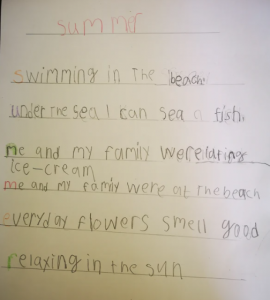 summer
swimming in The beach
under the sea I can sea a fish.
me and my family were eating
Ice-cream
me and my family were at the beach
everyday flowers smell good
relaxing in the sun